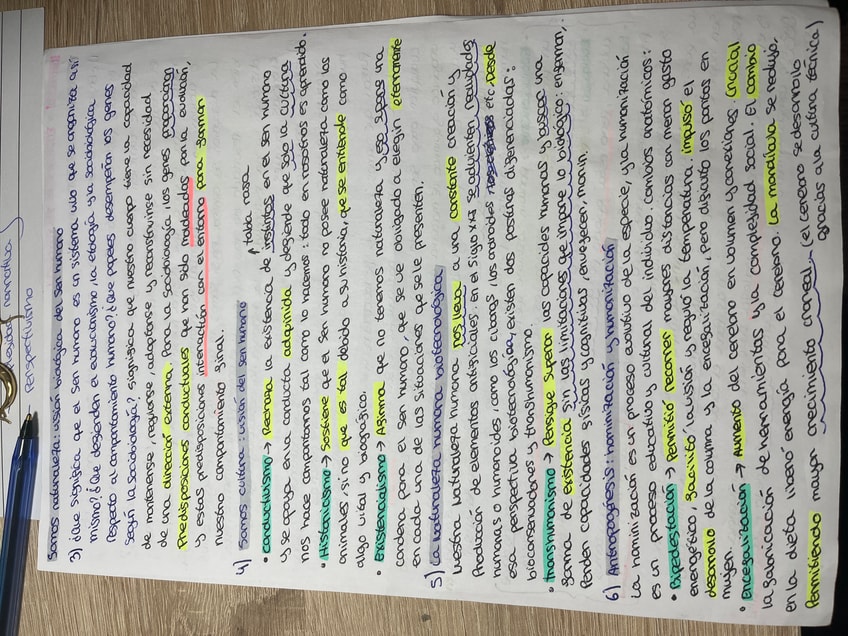 perspectivismo
Somos naturaleza: visión biológica del ser humano
3) ¿Qué significa que el ser humano es un sistema vivo que se organiza a sí
mismo? ¿Qué defienden el evolucionismo, la etología y la sociobiológica
respecto al comportamiento humano? ¿Qué papeles desempeñan los genes
según la sociobiología? Significa que nuestro cuerpo tiene la capacidad
de mantenerse, regularse, adaptarse y reconstruirse sin necesidad
de una dirección externa. Para la sociobiología los genes proporcionan
Predisposiciones conductuales que han sido moldeadas por la evolución,
y estas predisposiciones interactúan con el entorno para formar
nuestro comportamiento final.
4) Somos cultura: visión del ser humano
↑ tabla rasa
• Conductivismo → Rechaza la existencia de instintos en el ser humano
y se apoya en la conducta adquirida y defiende que solo la cultura
nos hace comportarnos tal como lo hacemos: todo en nosotros es aprendido.
• Historicismo → Sostiene que el ser humano no posee naturaleza como los
animales, si no que es tal debido a su historia, que se entiende como
algo vital y biográfico.
• Existencialismo → Afirma que no tenemos naturaleza y eso supone una
condena para el ser humano, que se ve obligado a elegir eternamente
en cada una de las situaciones que se le presenten.
5) La naturaleza humana biotecnológica
Nuestra naturaleza humana nos lleva a una constante creación y
Producción de elementos artificiales: en el siglo XXI se advierten realidades
humanas o humanoides, como los ciborgs, los androides etc. Desde
esa perspectiva biotecnológica, existen dos posturas diferenciadas:
bioconservadores y transhumanismo.
• Transhumanismo → Persigue superar las capacidades humanas y buscar una
forma de existencia sin las limitaciones que impone lo biológico: enfermar,
Perder capacidades físicas y cognitivas, envejecer, morir.
6) Antropogénesis: hominización y humanización
La hominización es un proceso evolutivo de la especie, y la humanización
es un proceso educativo y cultural del individuo. Cambios anatómicos:
• Bipedestación → Permitió recorrer mayores distancias con menor gasto
energético, facilitó la visión y reguló la temperatura. impulsó el
desarrollo de la columna y la encefalización, pero dificultó los partos en
mujer.
• Encefalización → Aumento del cerebro en volumen y conexiones crucial
la fabricación de herramientas y la complejidad social. El cambio
en la dieta liberó energía para el cerebro. La mandíbula se redujo,
Permitiendo mayor crecimiento craneal. (el cerebro se desarrolló
gracias a la cultura técnica)